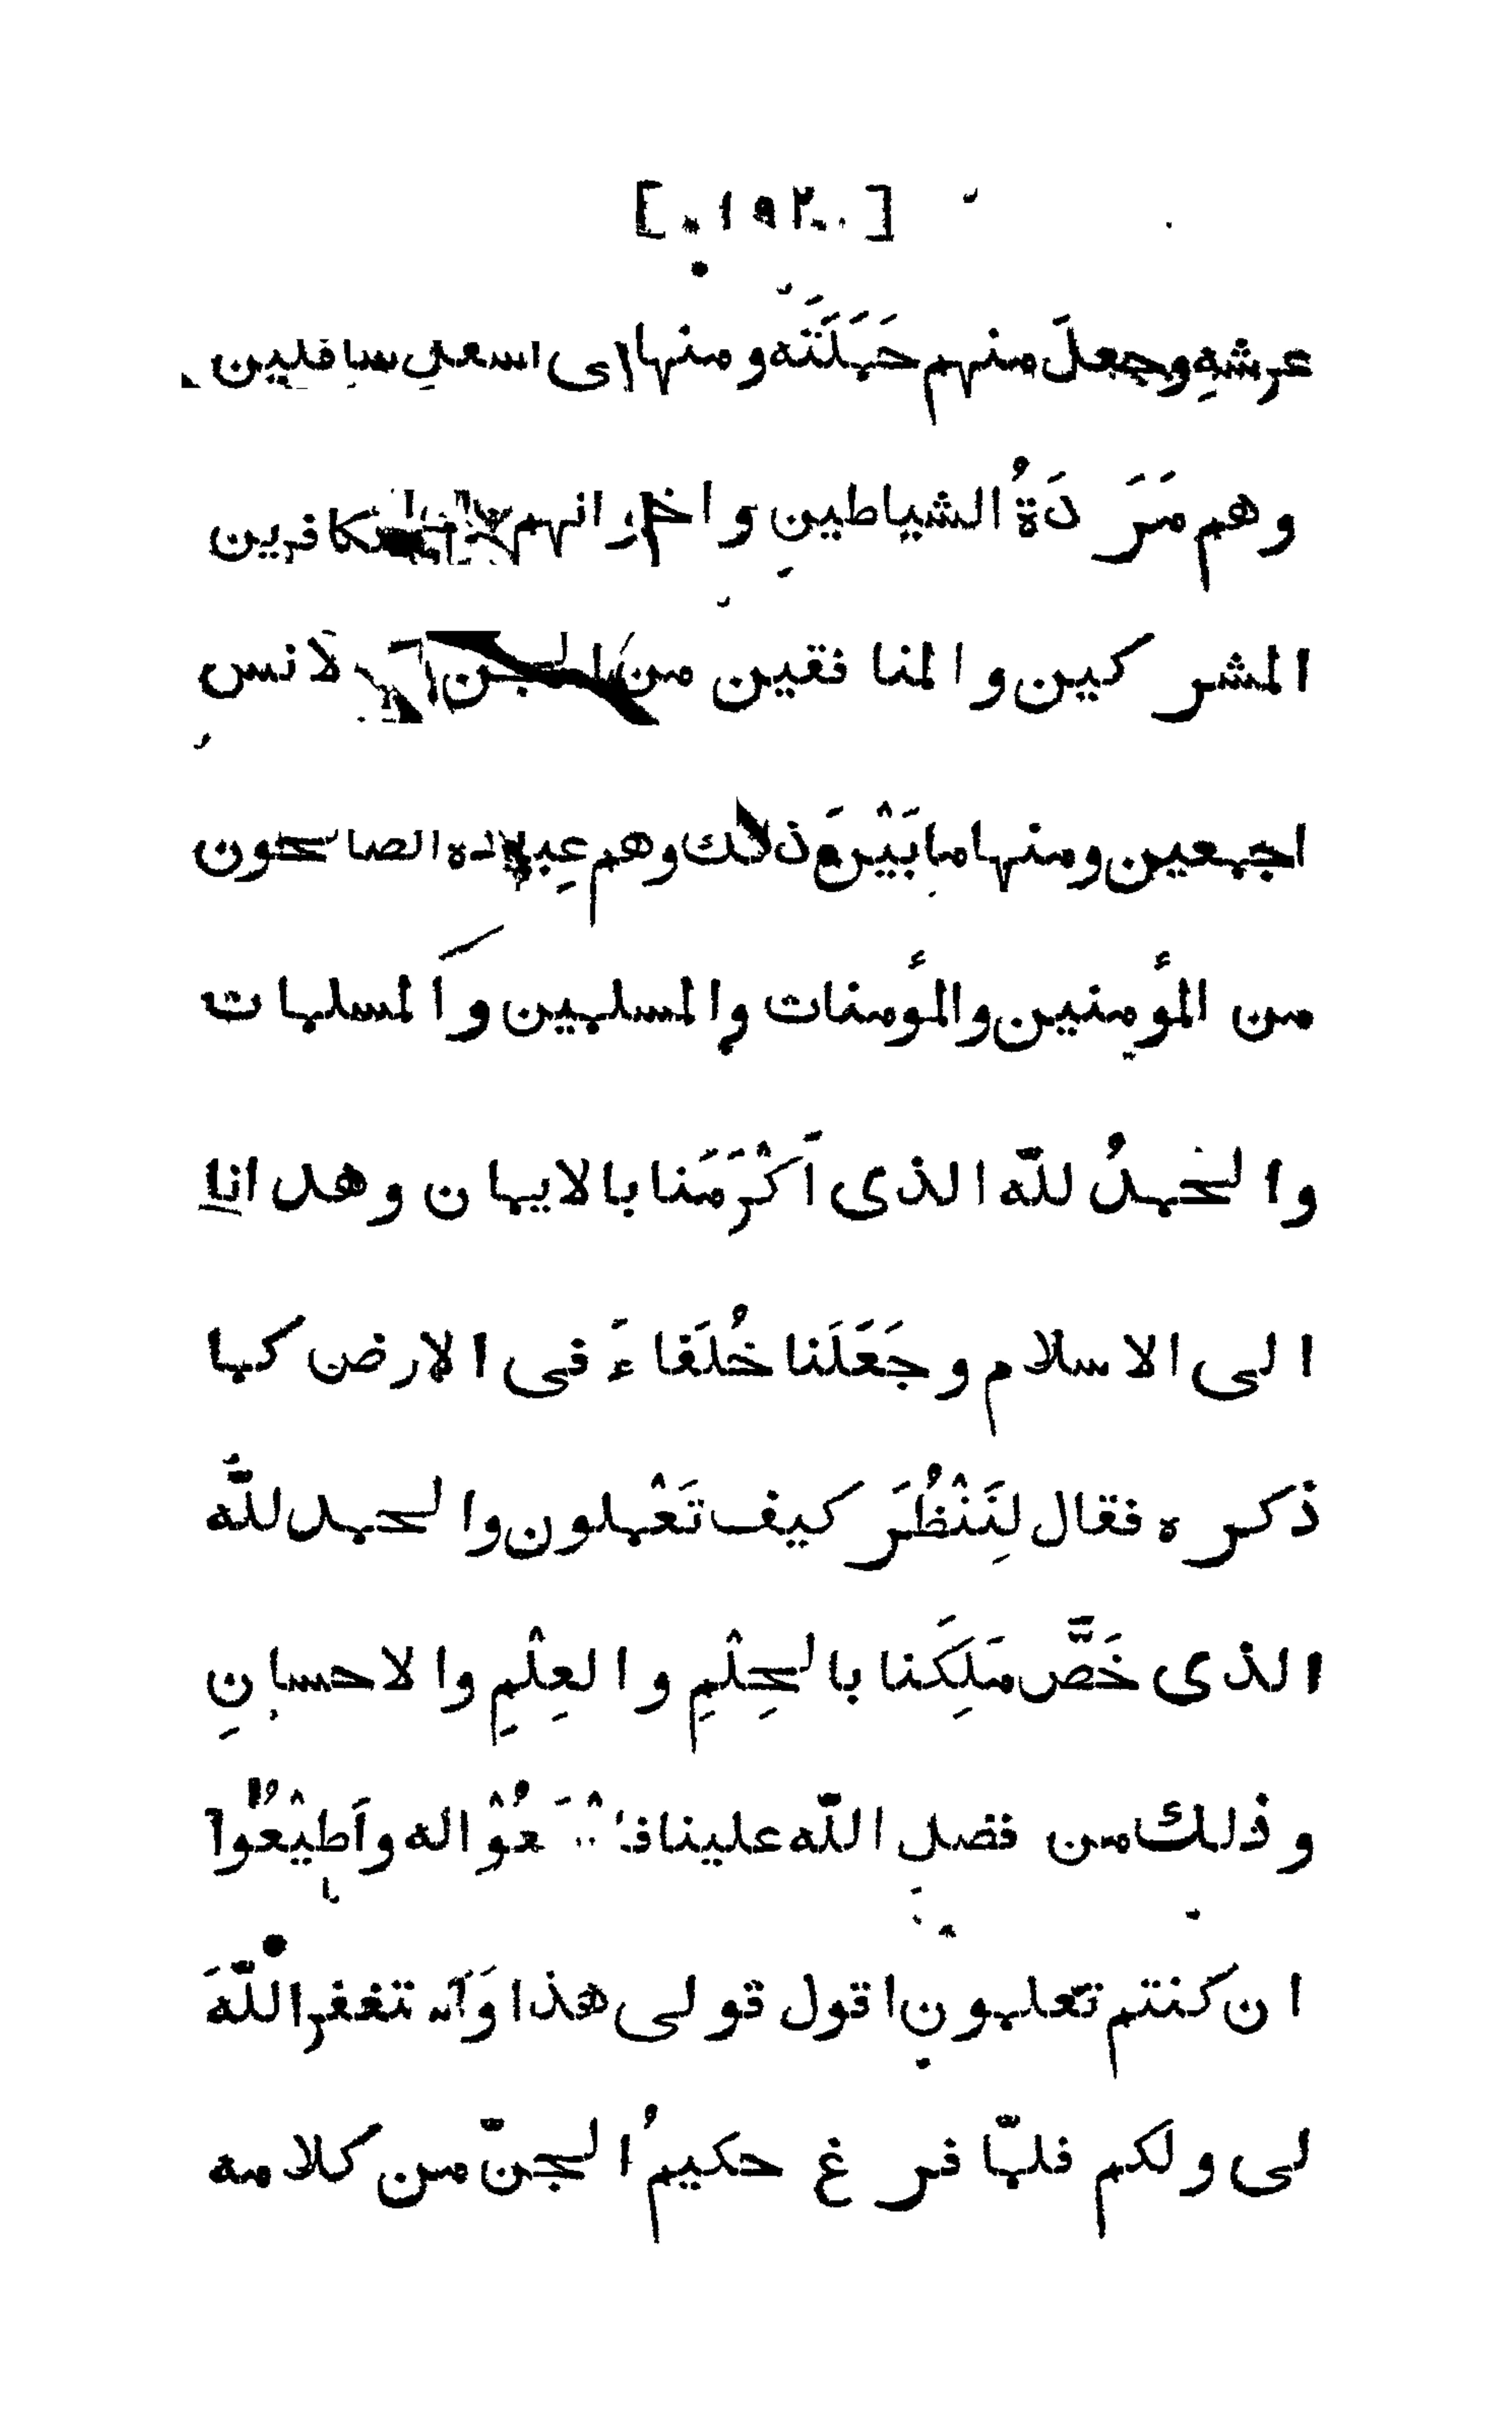 [ ١٩٢ ]
عرشهِ وجعلَ منهم حَمَلَتَه ومنها الى اسفل سافلين
وهم مَرَدَةُ الشياطينِ واخوانهم من الكافرين
المشركين والمنافقين من الجن والانس
اجمعين ومنها ما بَيْنَ ذلك وهم عِباده الصالحون
من المؤمنين والمؤمنات والمسلمين والمسلمات
والحمدُ للّه الذى اَكْرَمَنا بالايمان وهدانا
الى الاسلام وجَعَلَنا خُلَفاءَ فى الارض كما
ذكره فقال لِنَنْظُرَ كيف تَعْملون والحمد للّه
الذى خَصَّ مَلِكَنا بالحِلْمِ والعِلْمِ والاحسانِ
وذلك من فضل اللّه علينا عُوْا له واَطِيْعُوا
ان كنتم تعلمون اقول قولى هذا وَاَستغفر اللّهَ
لى ولكم فلمّا فرغ حكيمُ الجنّ من كلامه